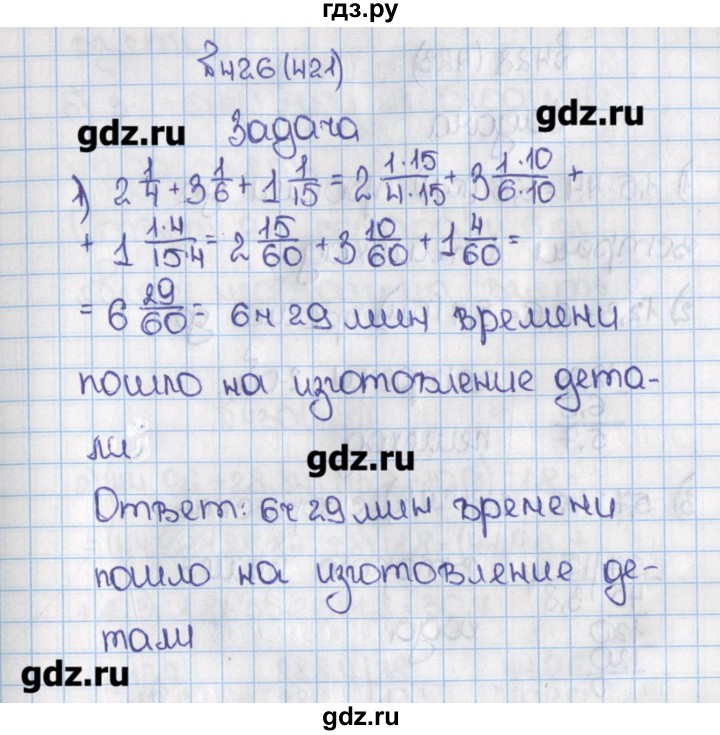 гдз.ру
в426(421)
gdz.ru
Задача
gdz.ru
1) 2 1/4 + 3 1/6 + 1 1/15 = 2 1·15/4·15 + 3 1·10/6·10 +
+ 1 1·4/15·4 = 2 15/60 + 3 10/60 + 1 4/60 =
= 6 29/60 = 6ч 29 мин времени
пошло на изготовление дета-
ли
gdz.ru
Ответ: 6ч 29 мин времени
пошло на изготовление де-
тали
gdz.ru
gdz.ru